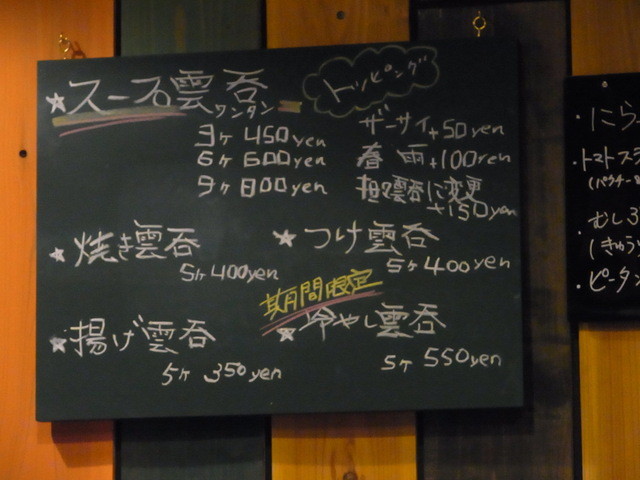 ★スープ雲呑
ワンタン
3ヶ 450yen
6ヶ 600yen
9ヶ 800yen
トッピング
ザーサイ+50yen
春雨+100yen
担々雲呑に変更
+150yen
★焼き雲呑
5ヶ400yen
★つけ雲呑
5ヶ400yen
★揚げ雲呑
5ヶ 350yen
期間限定
★冷やし雲呑
5ヶ 550yen
・にら
・トマトス
・むし
・ピータン